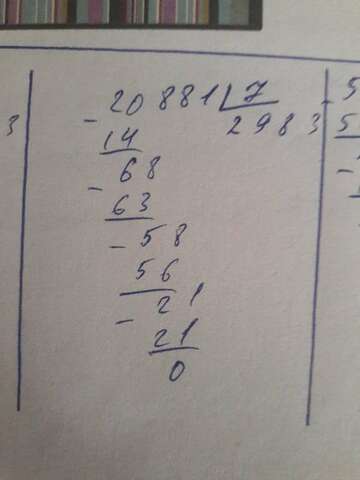 - 20881 | 7
14 2983
- 68
63
- 58
56
- 21
21
0
3
5
5